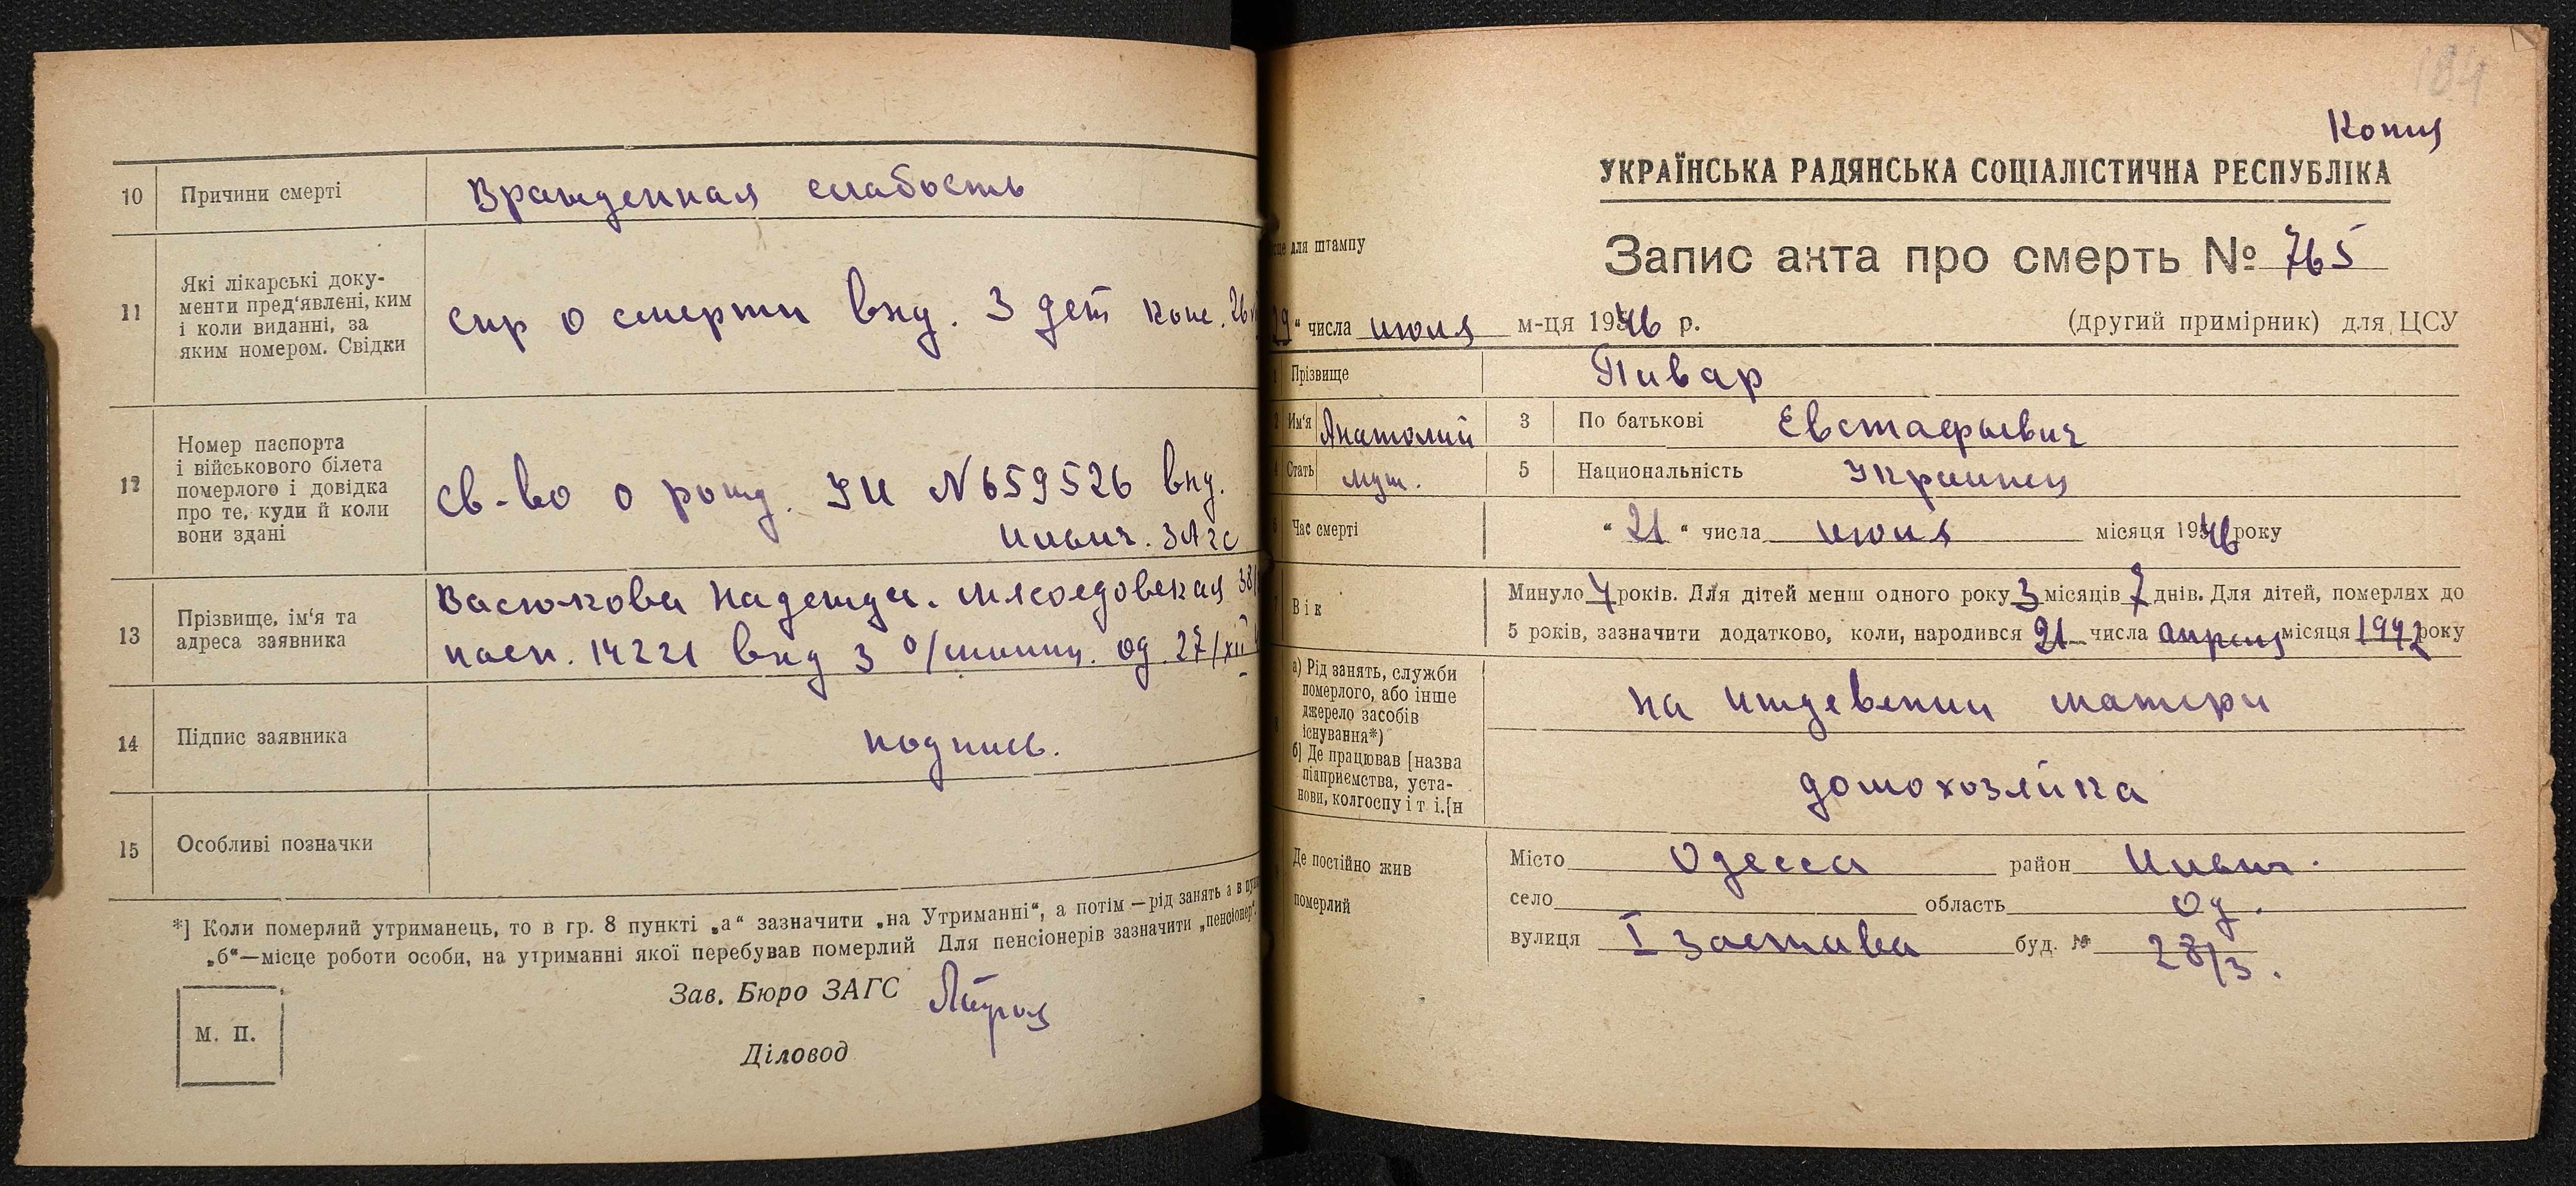 10 Причини смерті Врожденная слабость
11 Які лікарські доку-
менти пред'явлені, ким
і коли виданні, за
яким номером. Свідки
спр о смерти выд. 3 дет конс. 26
12 Номер паспорта
і військового білета
померлого і довідка
про те, куди й коли
вони здані
св-во о рожд. УИ N 659526 выд.
Ильич. ЗАГС
13 Прізвище, ім'я та
адреса заявника
Васюкова Надежда. Мясоедовская 38/
пасп. 14221 выд 3 о/милиц. Од. 27/XII
14 Підпис заявника подпись.
15 Особливі позначки
*] Коли померлий утриманець, то в гр. 8 пункті „а“ зазначити „на Утриманні“, а потім—рід занять а в
„б“—місце роботи особи, на утриманні якої перебував померлий Для пенсіонерів зазначити „пенсіонер“.
Зав. Бюро ЗАГС
М. П.
Діловод
184
Копия
УКРАЇНСЬКА РАДЯНСЬКА СОЦІАЛІСТИЧНА РЕСПУБЛІКА
для штампу
Запис акта про смерть № 765
29“ числа июля м-ця 1946 р. (другий примірник) для ЦСУ
Прізвище Пивар
2 Им'я Анатолий 3 По батькові Евстафьевич
Стать муж. 5 Национальність Украинец
Час смерті “ 21 “ числа июля місяця 1946 року
Вік
Минуло 4 років. Для дітей менш одного року 3 місяців 7 днів. Для дітей, померлях до
5 років, зазначити додатково, коли, народився 21 числа апреля місяця 1942 року
а) Рід занять, служби
померлого, або інше
джерело засобів
існування*)
на иждевении матери
б] Де працював [назва
підприємства, уста-
нови, колгоспу і т і.[н
домохозяйка
Де постійно жив
померлий
Місто Одесса район Ильич.
село область Од.
вулиця I Застава буд. № 28/3.